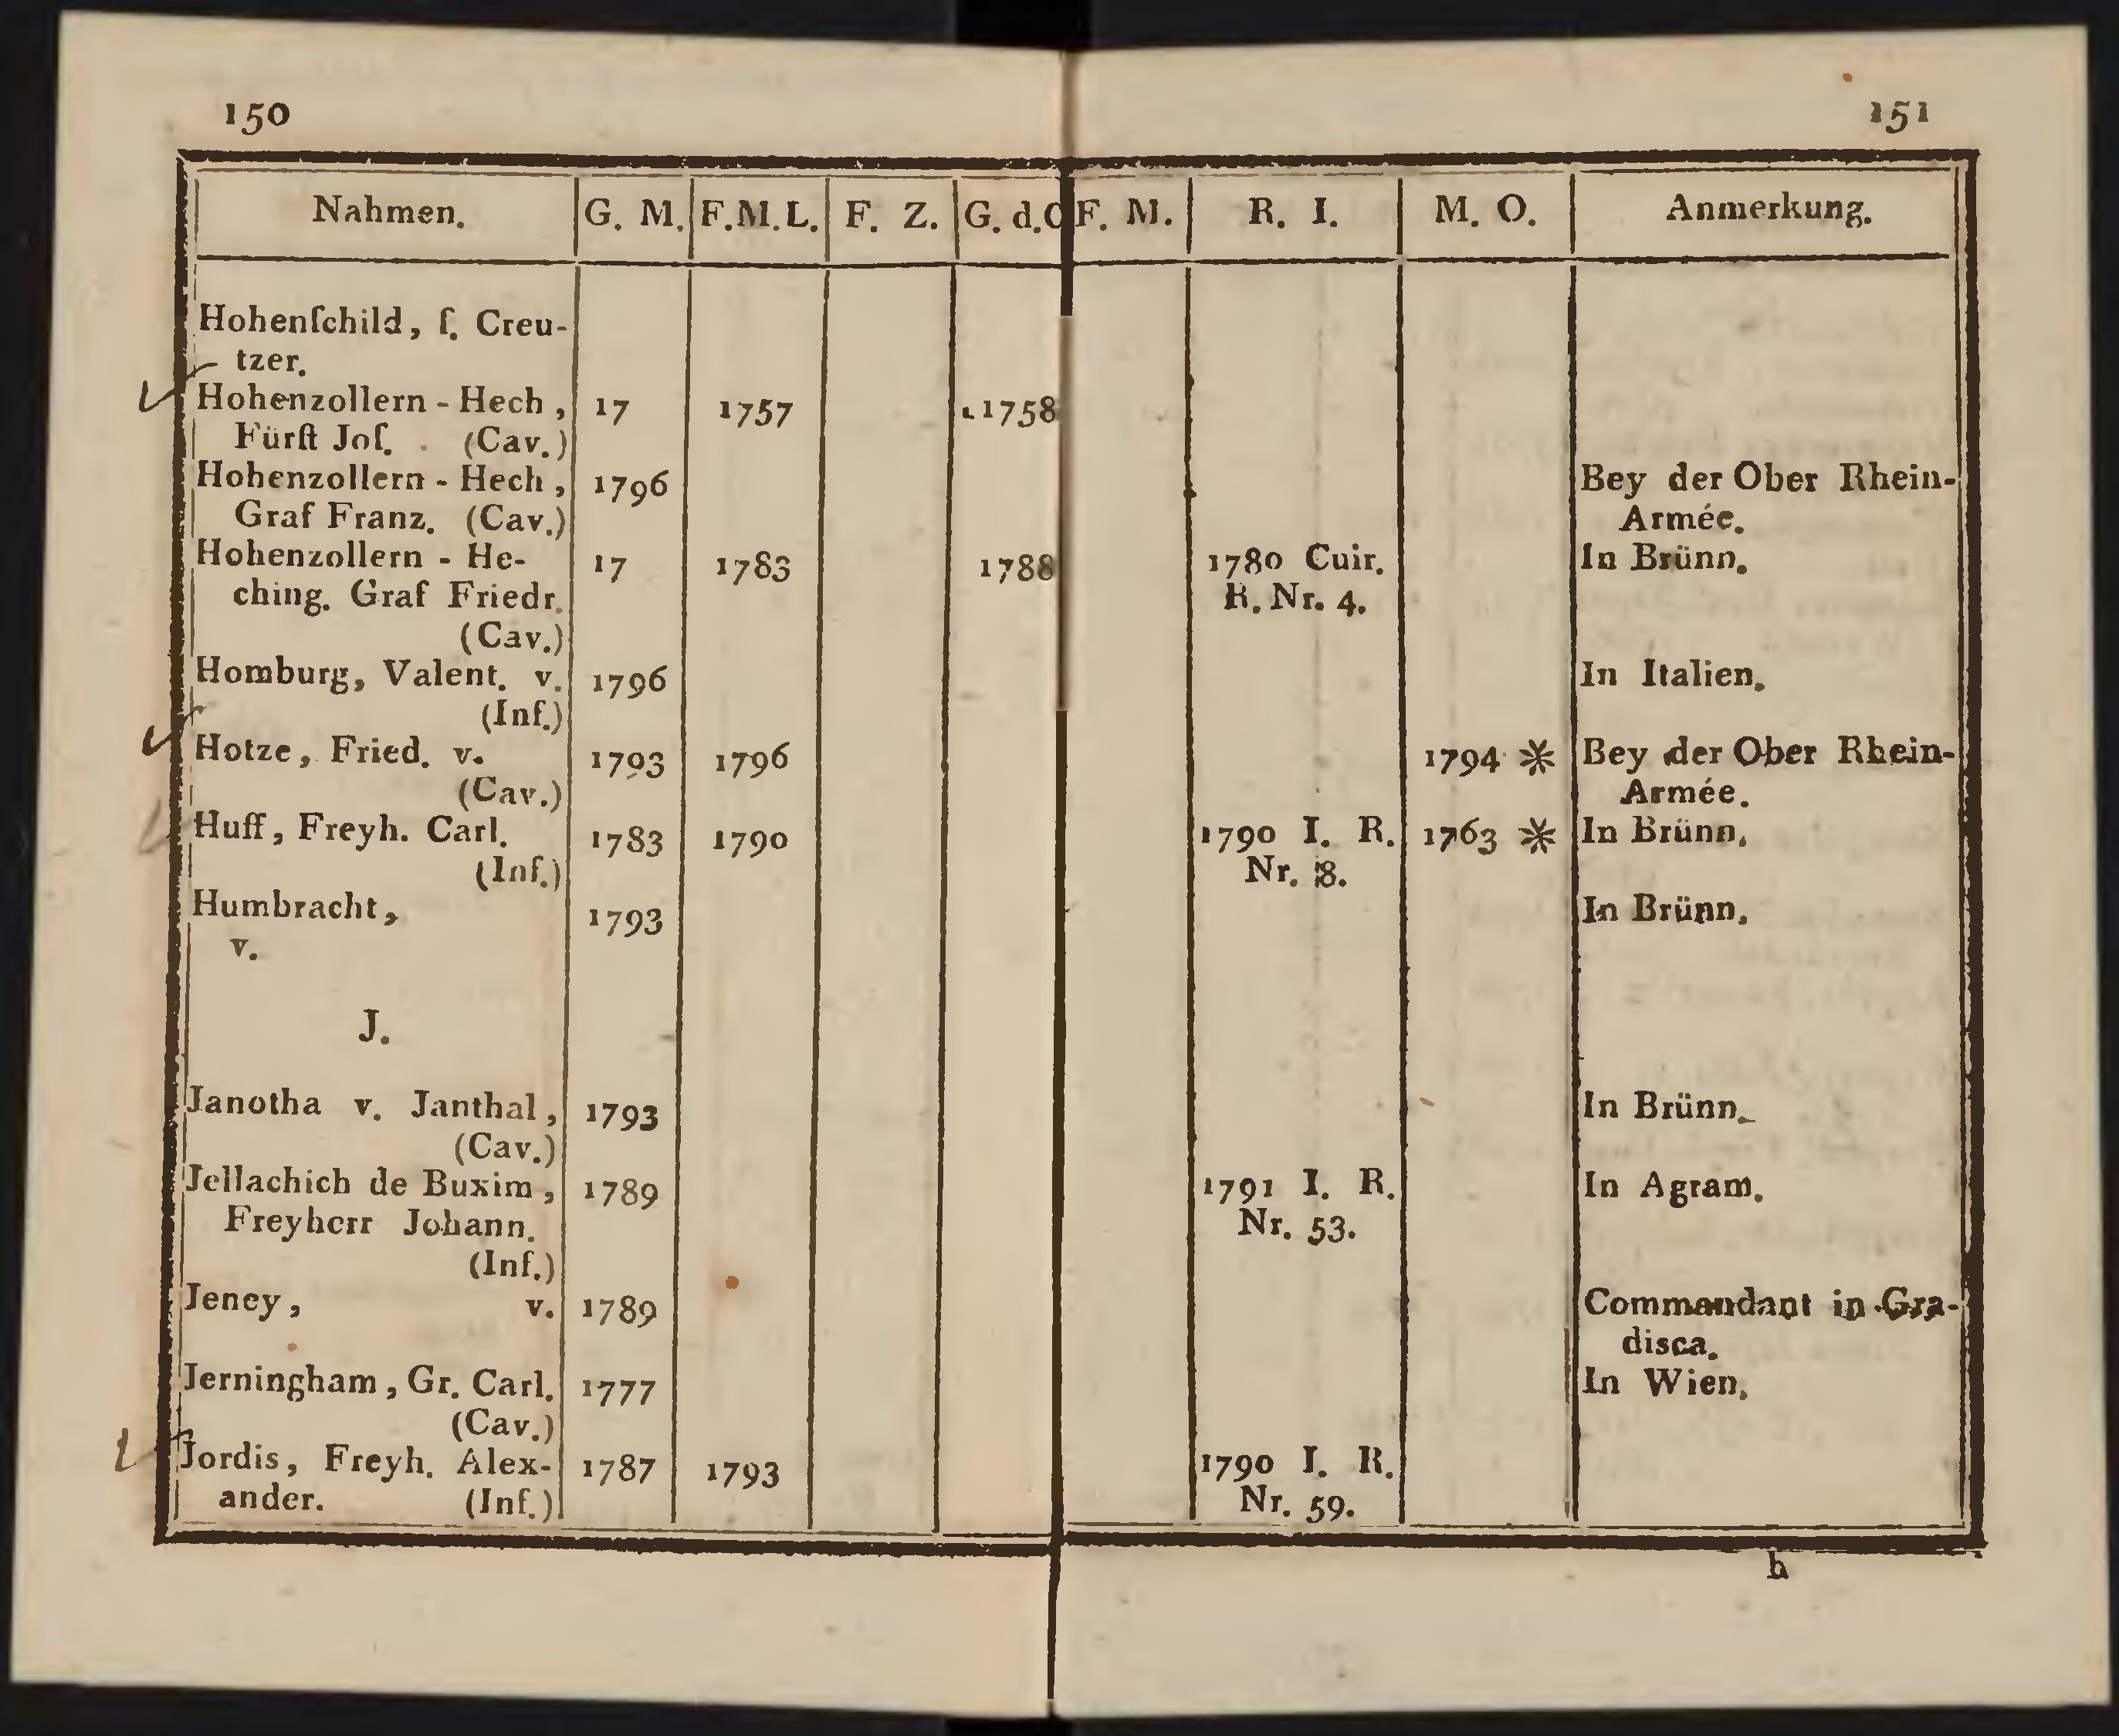 150
151
Nahmen. G. M. F.M.L. F. Z. G. d.C F. M. R. I. M. O. Anmerkung.
Hohenſchild, ſ. Creu-
tzer.
Hohenzollern - Hech, 17 1757 1758
Fürſt Joſ. (Cav.)
Hohenzollern - Hech, 1796 Bey der Ober Rhein-
Graf Franz. (Cav.) Armée.
Hohenzollern - He- 17 1783 1788 1780 Cuir. In Brünn.
ching. Graf Friedr. R. Nr. 4.
(Cav.)
Homburg, Valent. v. 1796 In Italien.
(Inf.)
Hotze, Fried. v. 1793 1796 1794 * Bey der Ober Rhein-
(Cav.) Armée.
Huff, Freyh. Carl. 1783 1790 1790 I. R. 1763 * In Brünn.
(Inf.) Nr. 8.
Humbracht, 1793 In Brünn.
v.
J.
Janotha v. Janthal, 1793 In Brünn.
(Cav.)
Jellachich de Buxim, 1789 1791 I. R. In Agram.
Freyherr Johann. Nr. 53.
(Inf.)
Jeney, v. 1789 Commandant in Gra-
disca.
Jerningham, Gr. Carl. 1777 In Wien.
(Cav.)
Jordis, Freyh. Alex- 1787 1793 1790 I. R.
ander. (Inf.) Nr. 59.
h